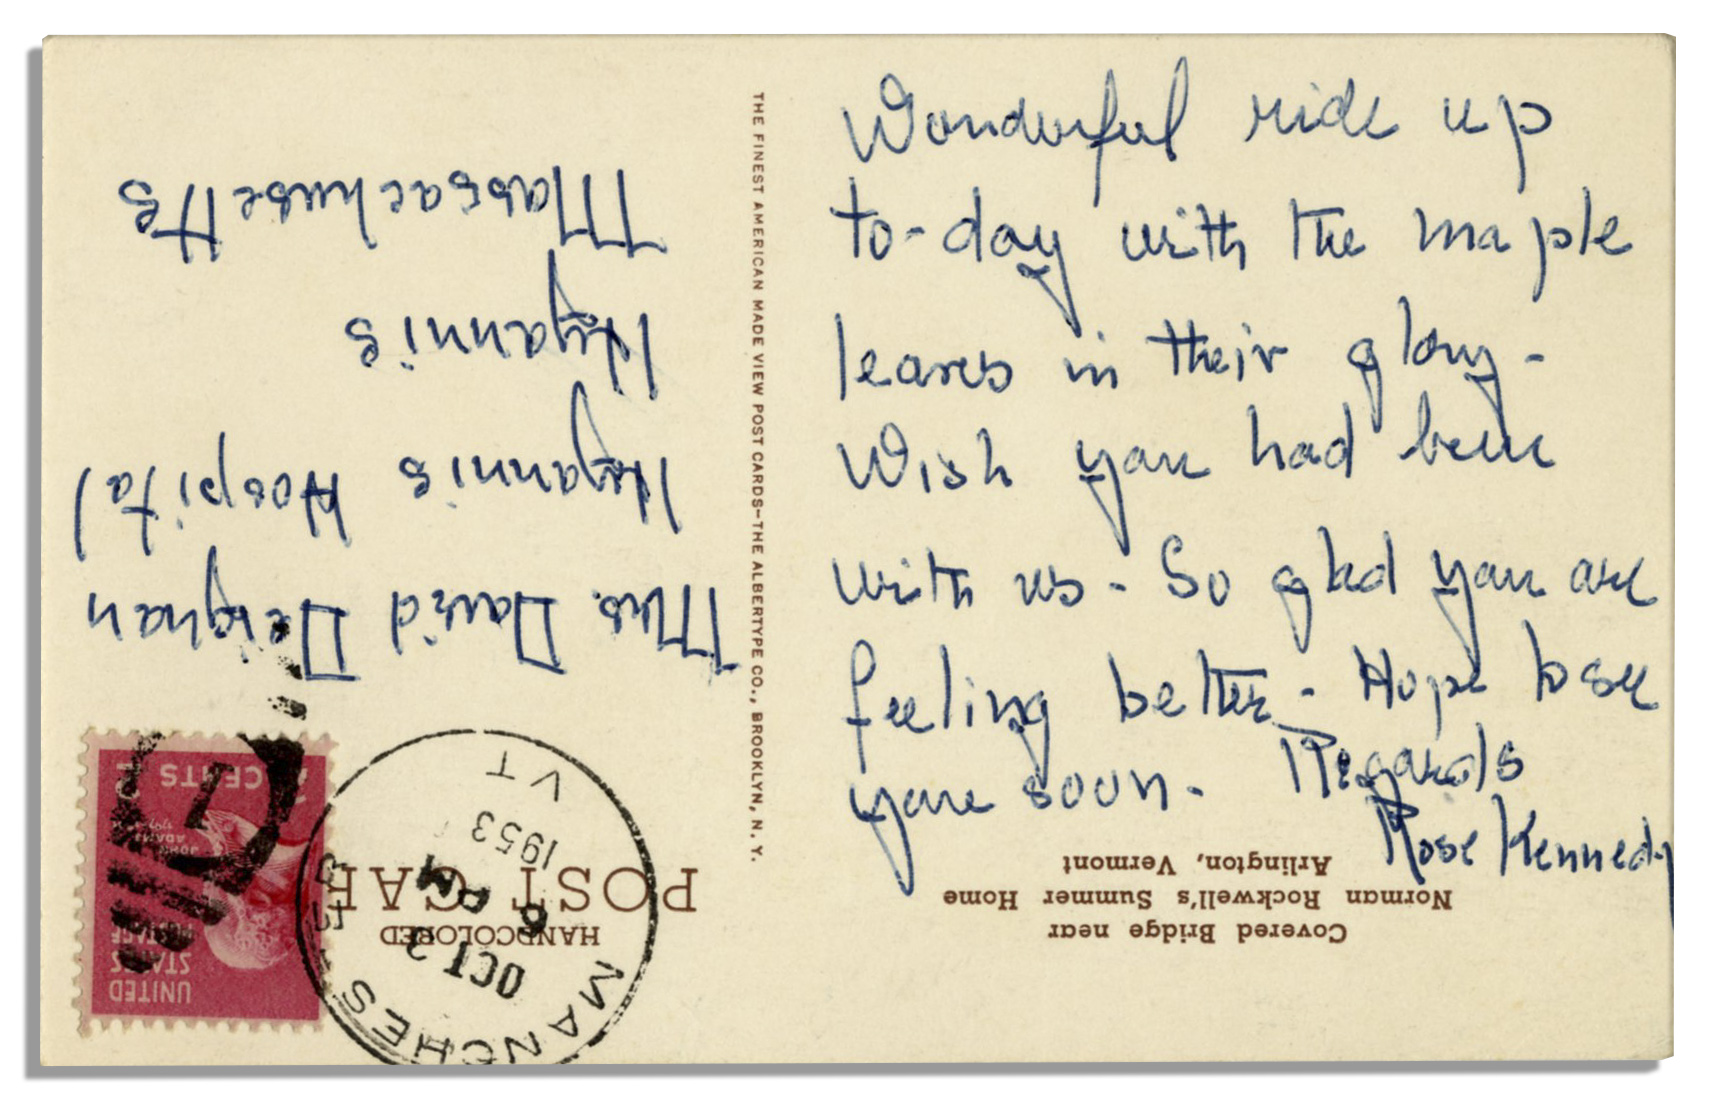 Wonderful ride up
to-day with the maple
leaves in their glory -
Wish you had been
with us - So glad you are
feeling better - Hope to see
you soon - Regards
Rose Kennedy
Mrs. David Deignan
Hyannis Hospital
Hyannis
Massachusetts
THE FINEST AMERICAN MADE VIEW POST CARDS—THE ALBERTYPE CO., BROOKLYN, N.Y.
Covered Bridge near
Norman Rockwell's Summer Home
Arlington, Vermont
HANDCOLORED
POST CARD
MANCHESTER
OCT 2
6 PM
1953
VT
UNITED
STATES
POSTAGE
JOHN
ADAMS
2 CENTS 2